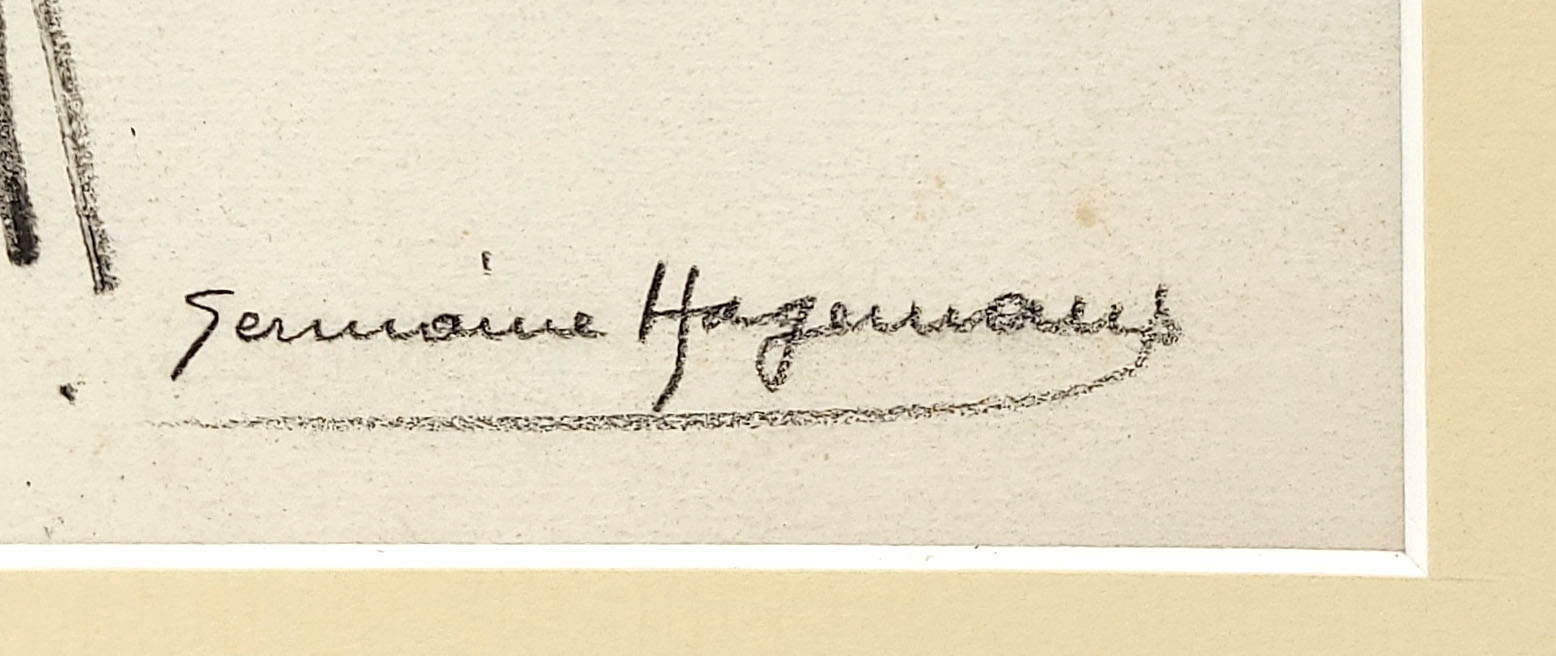 Germaine Hagemans